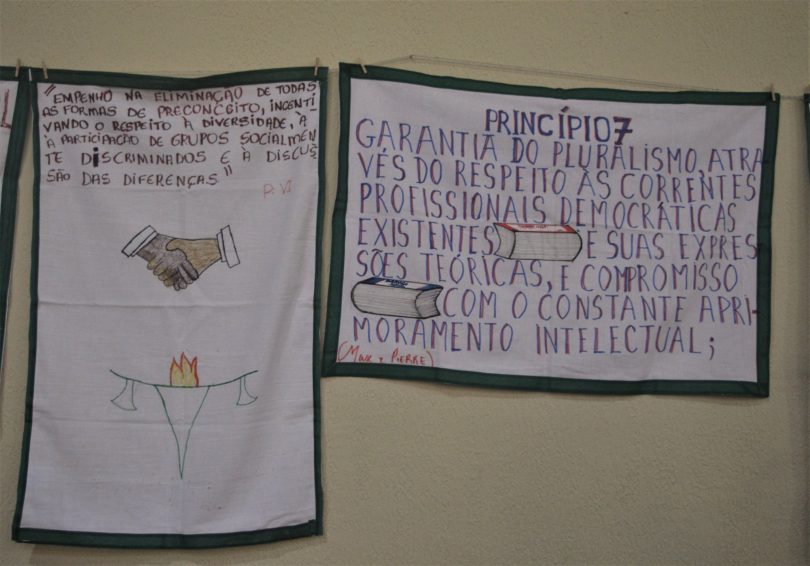 "EMPENHO NA ELIMINAÇÃO DE TODAS
AS FORMAS DE PRECONCEITO, INCENTI
VANDO O RESPEITO À DIVERSIDADE, À
À PARTICIPAÇÃO DE GRUPOS SOCIALMEN
TE DISCRIMINADOS E À DISCUS
SÃO DAS DIFERENÇAS"
P. VI
PRINCÍPIO 7
GARANTIA DO PLURALISMO, ATRA
VÉS DO RESPEITO ÀS CORRENTES
PROFISSIONAIS DEMOCRÁTICAS
EXISTENTES E SUAS EXPRES
SÕES TEÓRICAS, E COMPROMISSO
COM O CONSTANTE APRI-
MORAMENTO INTELECTUAL;
PIERRE)